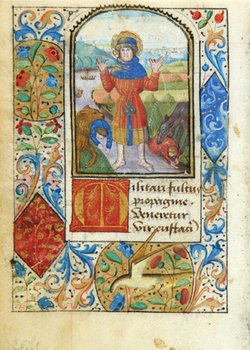 Militari fultus
propugme
Veneretur
vir eustaci